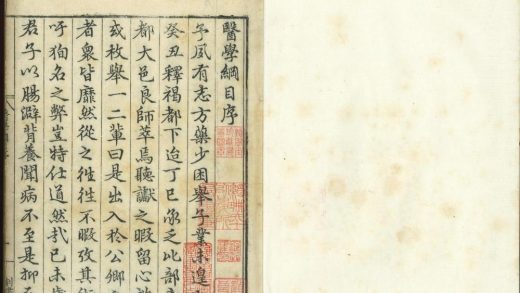 醫學綱目序
予夙有志方藥少困舉子業未遑
癸丑釋褐都下迨丁巳承乏比部
都大邑良師萃焉聽讞之暇留心
或枚舉一二輩曰是出入於公卿
者衆皆靡然從之徃徃不暇攷其術
吁狥名之弊豈特仕道然哉己未
君子以腸澼背養聞病不至是抑